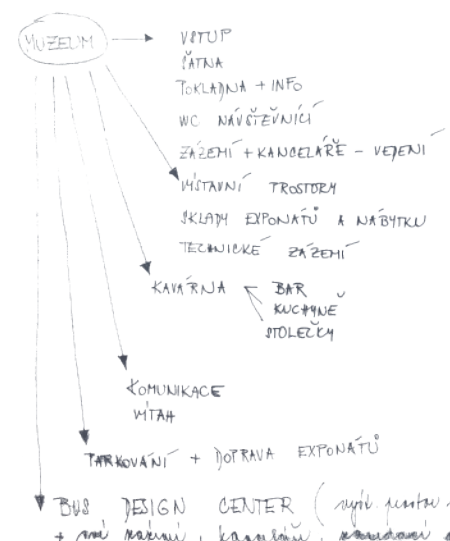 MUZEUM
VSTUP
ŠATNA
POKLADNA + INFO
WC NÁVŠTĚVNÍCÍ
ZÁZEMÍ + KANCELÁŘE - VEDENÍ
VÝSTAVNÍ PROSTORY
SKLADY EXPONÁTŮ A NÁBYTKU
TECHNICKÉ ZÁZEMÍ
KAVÁRNA
BAR
KUCHYNĚ
STOLEČKY
KOMUNIKACE
VÝTAH
PARKOVÁNÍ + DOPRAVA EXPONÁTŮ
BUS DESIGN CENTER (výst. prostor
+